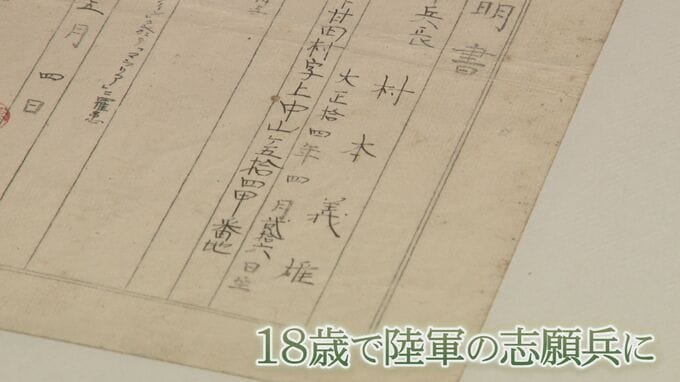 明書
兵長
村本義雄
大正拾四年四月貳拾六日生
甘田村字上中山ヶ五拾四甲
番地
マラリアニ罹患
五月四日
18歳で陸軍の志願兵に